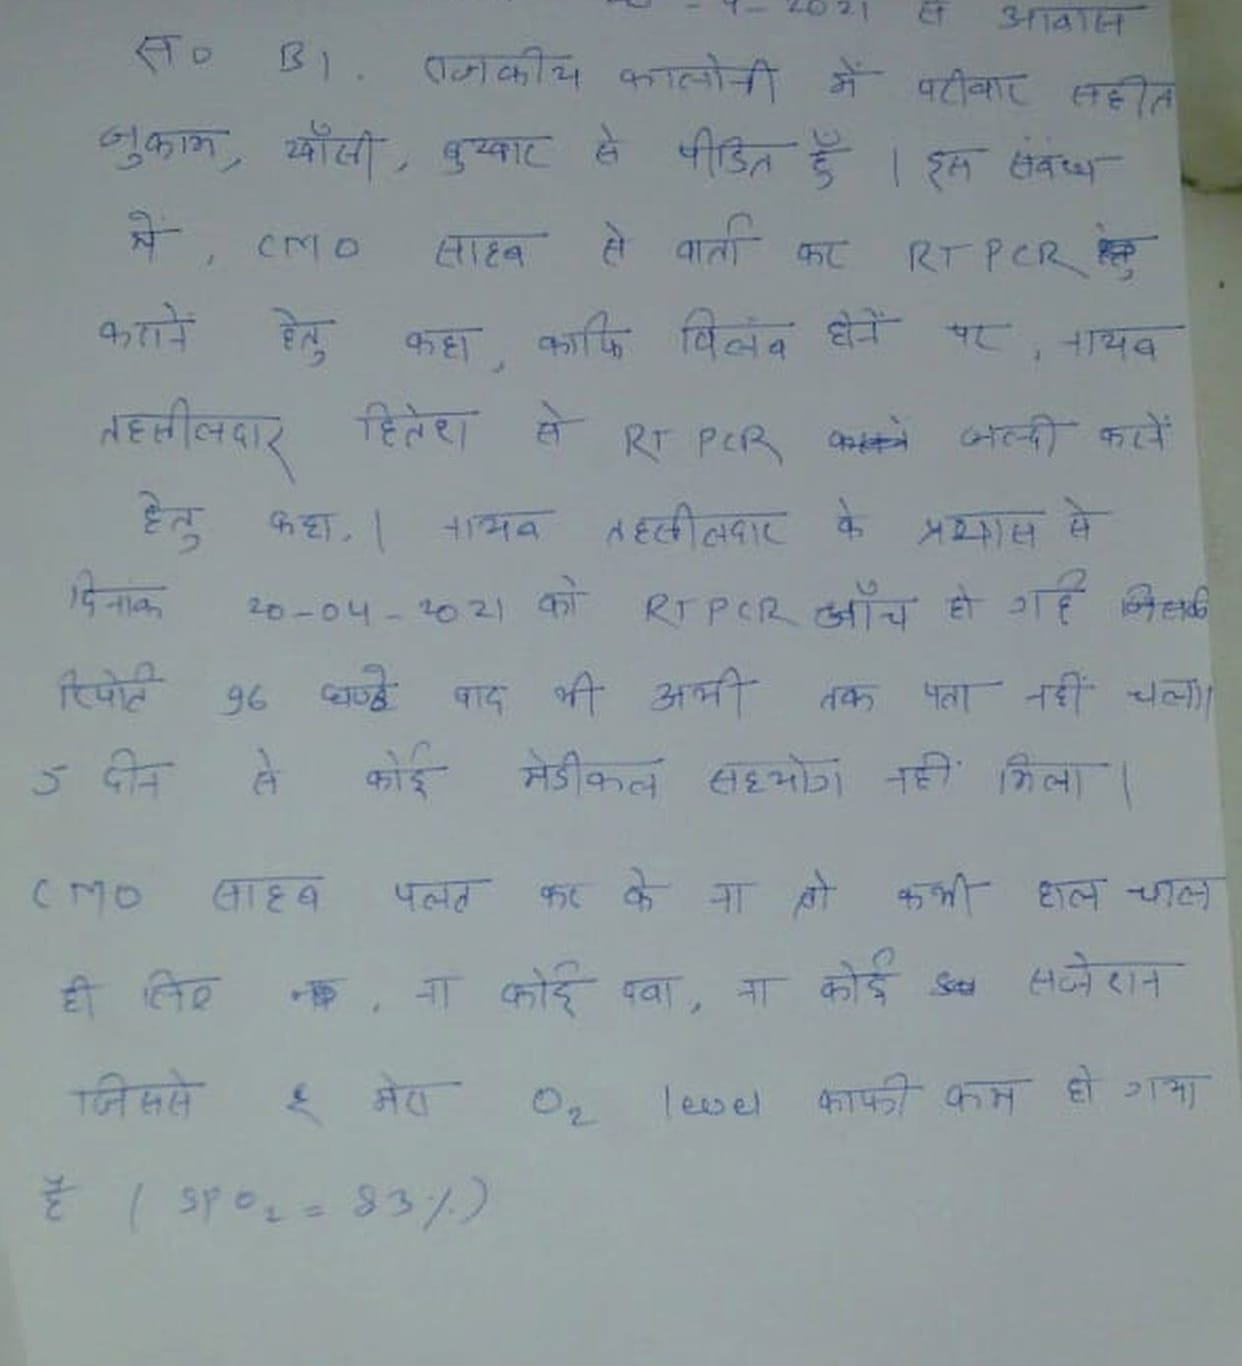 -4-2021 से आवास
स० B1. राजकीय कालोनी में परीवार सहीत
जुकाम, खाँसी, बुखार से पीडित हूँ । इस संबंध
में, CMO साहब से वार्ता कर RTPCR हेतु
कराने हेतु कहा, काफि विलंब होनें पर, नायब
तहसीलदार हितेश से RTPCR जल्दी करानें
हेतु कहा. । नायब तहसीलदार के प्रयास से
दिनांक 20-04-2021 को RTPCR जाँच हो गई जिसकी
रिपोर्ट 96 घण्टे बाद भी अभी तक पता नहीं चला।
5 दीन से कोई मेडीकल सहयोग नहीं मिला ।
CMO साहब पलट कर के ना तो कभी हाल चाल
ही लिए, ना कोई दवा, ना कोई सजेशन
जिससे मेरा O2 level काफी कम हो गया
है ( SPO2 = 83%)